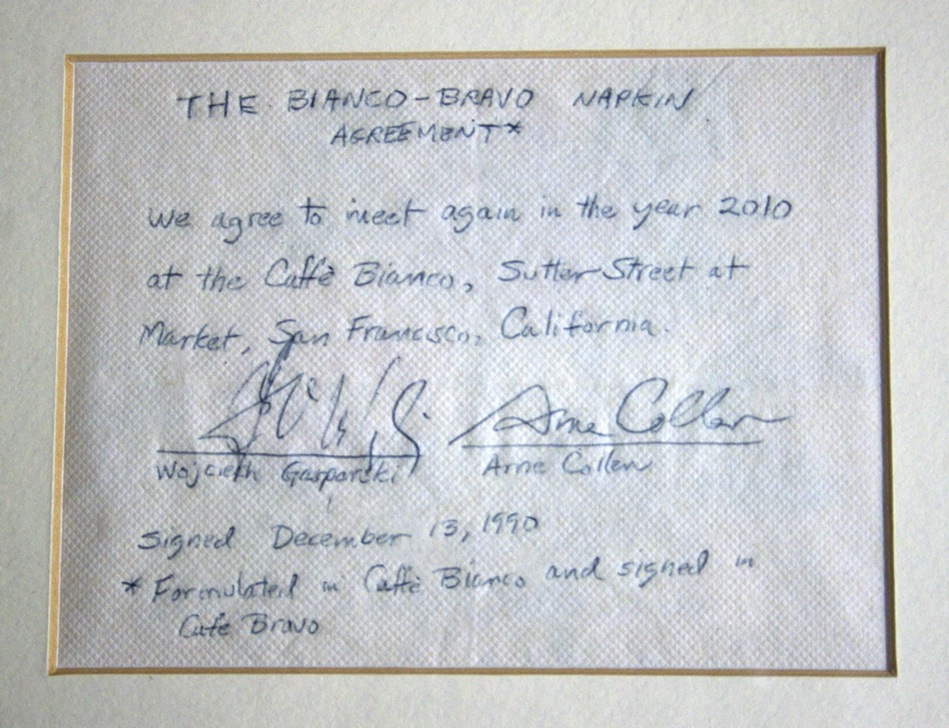 THE BIANCO-BRAVO NAPKIN
AGREEMENT*
We agree to meet again in the year 2010
at the Caffè Bianco, Sutter Street at
Market, San Francisco, California.
Arne Collen
Wojciech Gasparski Arne Collen
Signed December 13, 1990
* Formulated in Caffè Bianco and signed in
Cafe Bravo